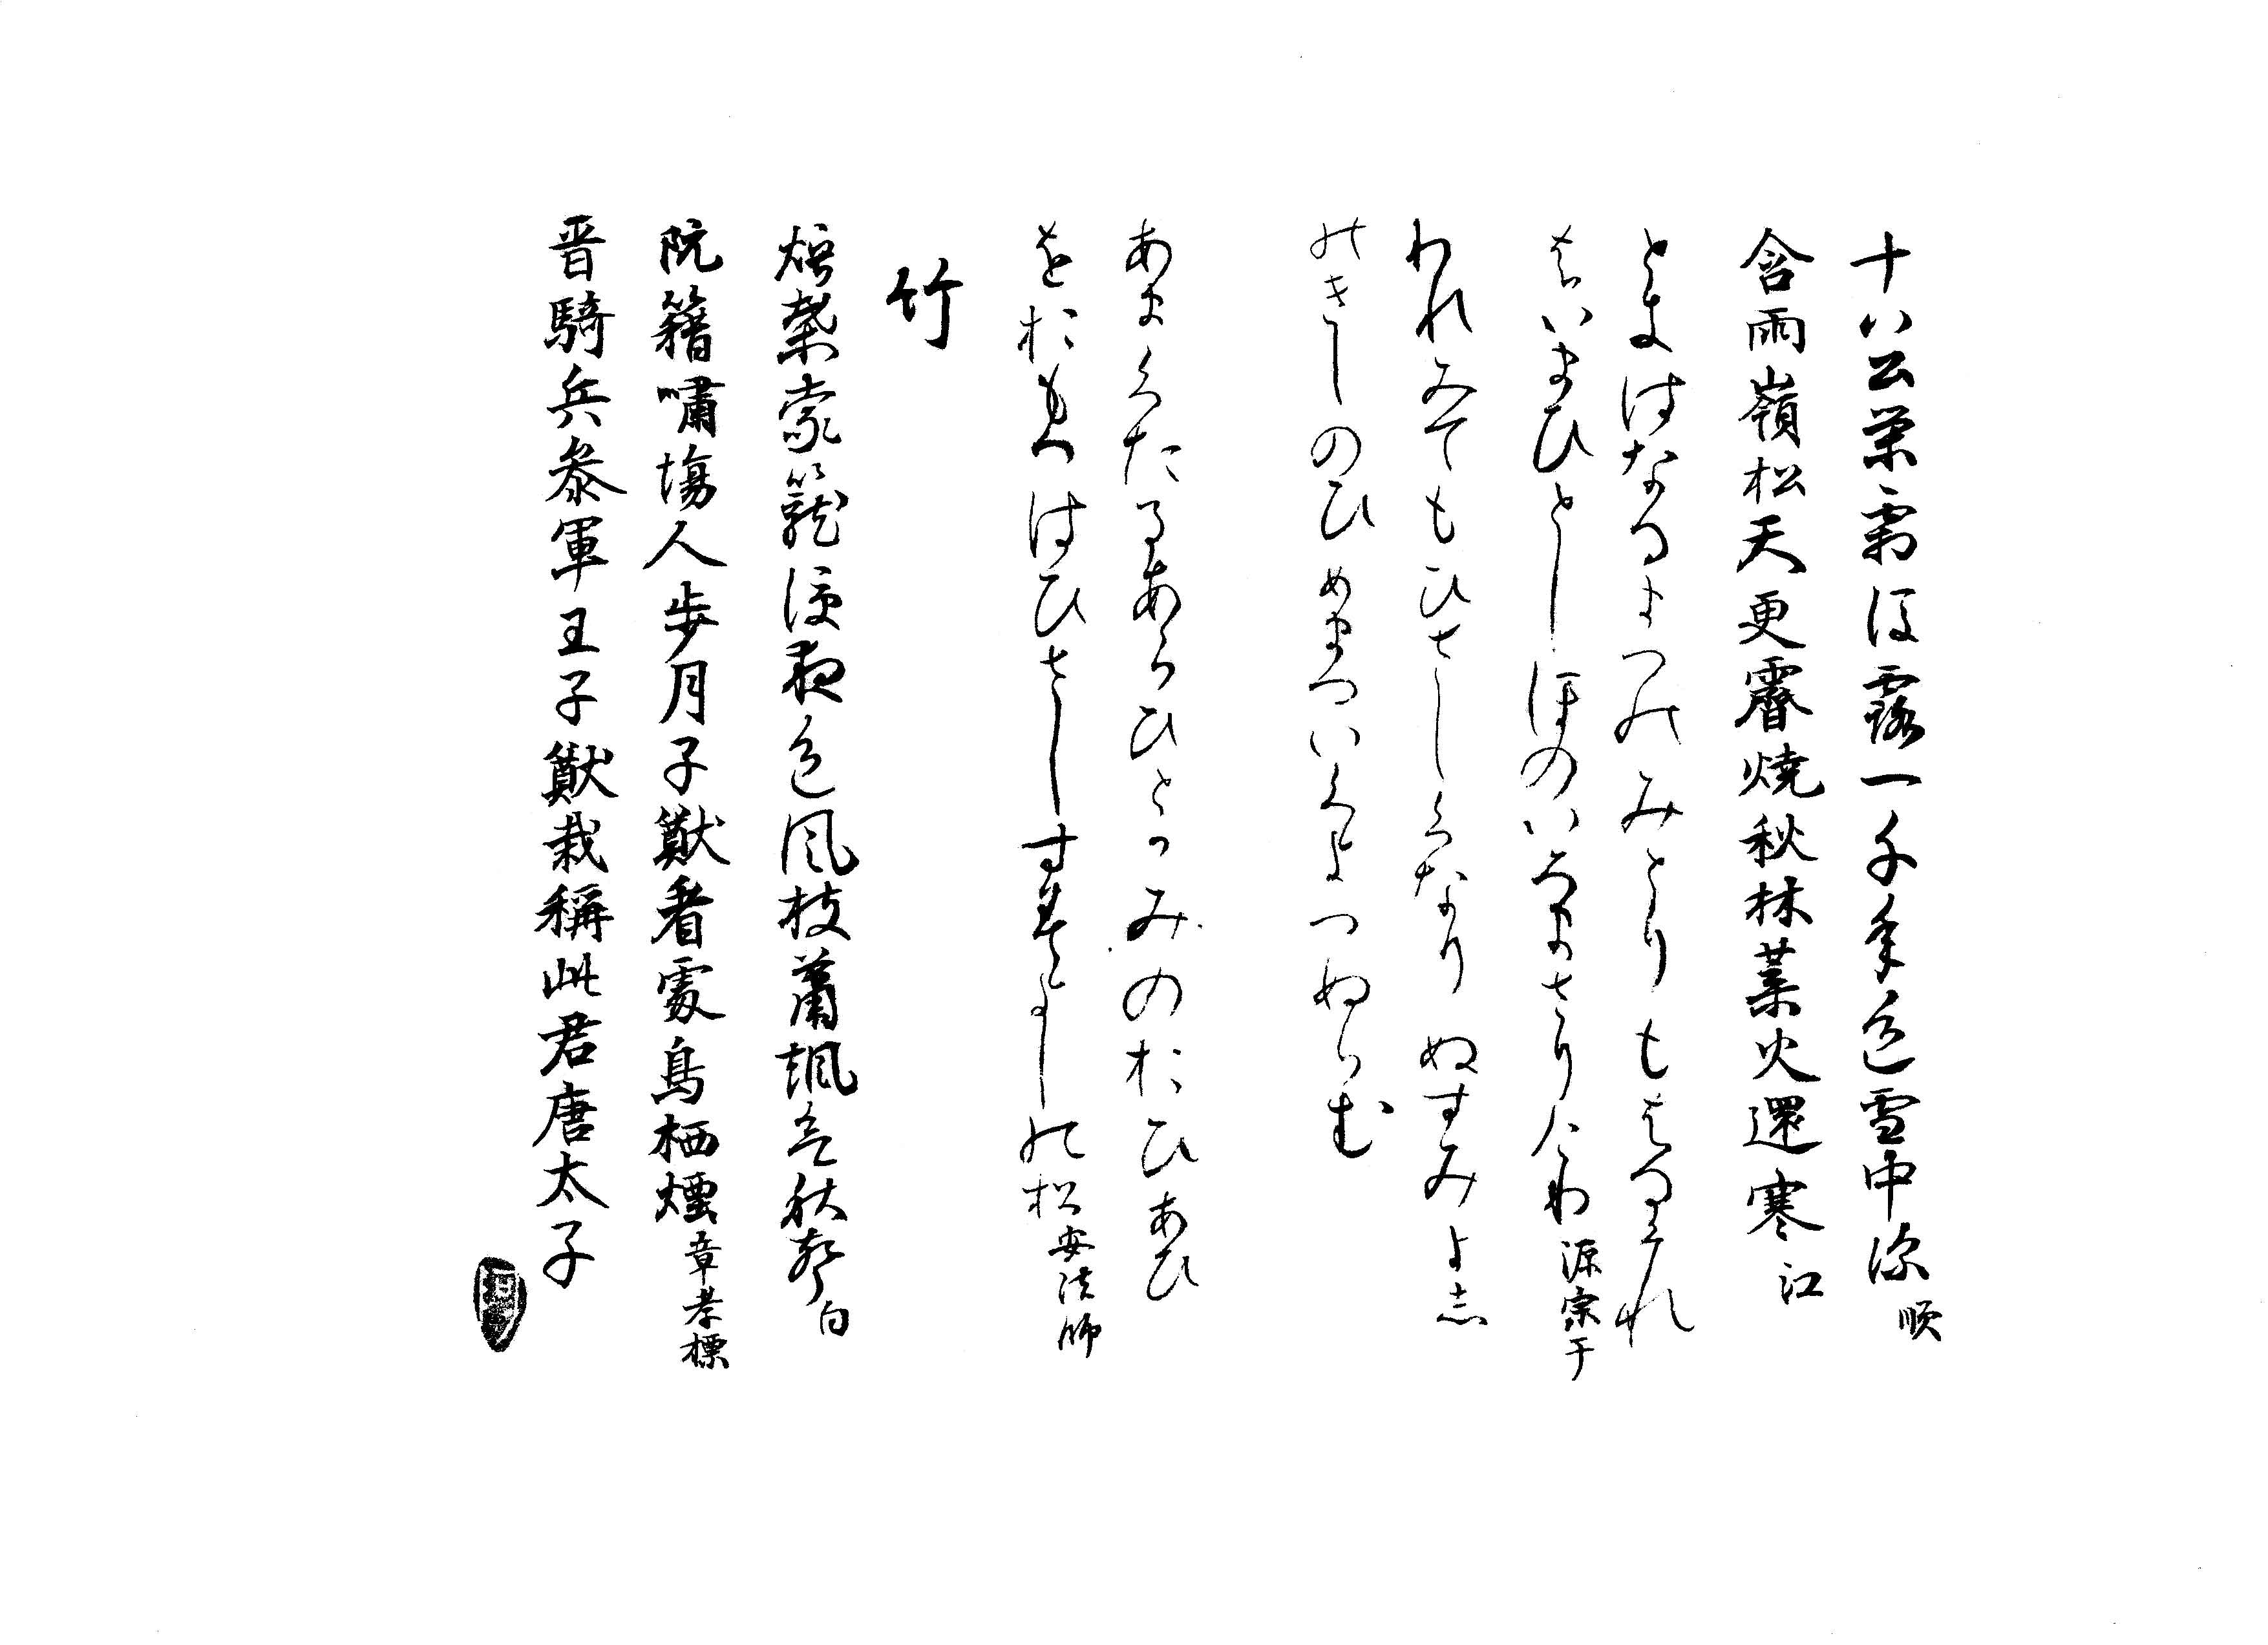 十八公栄霜後露一千年色雪中深 順
含雨嶺松天更霽燒秋林葉火還寒 江
ときはなるまつのみとりもはるくれ
はいまひとしほのいろまさりけり 源宗于
われみてもひさしくなりぬすみよし
のきしのひめまついくよへぬらむ
あまくたるあらひとかみのおひあひ
をおもへはひさしすみよしの松 安法師
竹
煙葉蒙籠侵夜色風枝蕭颯欲秋聲 白
阮籍嘯塲人歩月子猷看處鳥栖煙 章孝標
晋騎兵参軍王子猷栽稱此君唐太子